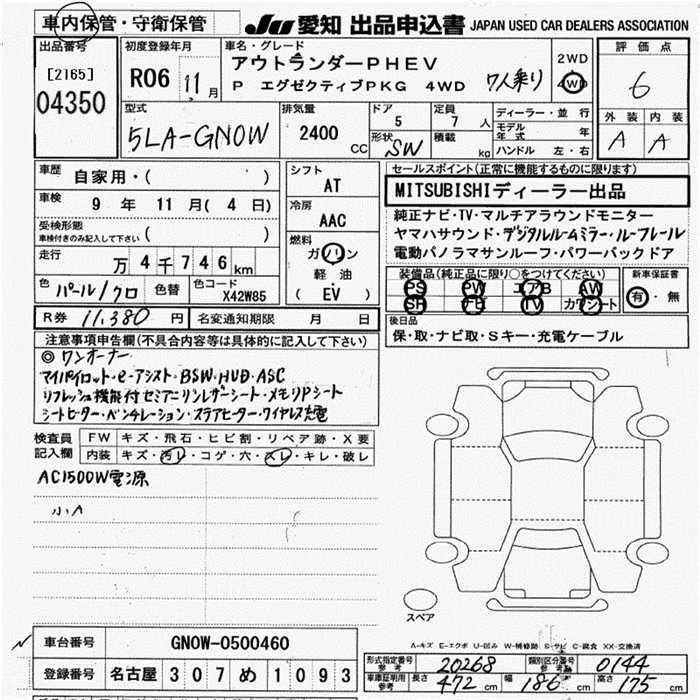 車内保管・守衛保管
JU 愛知 出品申込書 JAPAN USED CAR DEALERS ASSOCIATION
出品番号
[2165]
04350
初度登録年月
R06 11月
車名・グレード
アウトランダーPHEV
P エグゼクティブPKG 4WD 7人乗り
2WD
4WD
評価点
6
外装 内装
A A
型式
5LA-GN0W
排気量
2400 CC
ドア
5
形状
SW
定員
7 人
積載
kg
ディーラー・並行
モデル年式 年
ハンドル 左・右
車歴
自家用・( )
車検
9 年 11 月( 4 日)
受検形態
車検付きのみ記入して下さい ( )
走行
万 4 千 7 4 6 km
色 パール/クロ 色替 色コード X42W85
シフト
AT
冷房
AAC
燃料
ガソリン
軽油
( EV )
R券 11,380 円 名変通知期限 月 日
セールスポイント(正常に機能するものに限ります)
MITSUBISHIディーラー出品
純正ナビ・TV・マルチアラウンドモニター
ヤマハサウンド・デジタルルームミラー・ルーフレール
電動パノラマサンルーフ・パワーバックドア
装備品(純正品に限り○をつけてください)
PS PW エアB AW
SR ナビ TV カワシート
新車保証書
有・無
後日品
保・取・ナビ取・Sキー・充電ケーブル
注意事項申告欄(不具合内容等は具体的に記入して下さい)
◎ワンオーナー
マイパイロット・e-アシスト・BSW・HUD・ASC
リフレッシュ機能付セミアニリンレザーシート・メモリPシート
シートヒーター・ベンチレーション・ステアヒーター・ワイヤレス充電
検査員記入欄
FW キズ・飛石・ヒビ割・リペア跡・X要
内装 キズ・汚レ・コゲ・穴・スレ・キレ・破レ
AC1500W電源
小A
スペア
A-キズ E-エクボ U-凹み W-補修跡 S-サビ C-腐食 XX-交換済
車台番号 GN0W-0500460
登録番号 名古屋 307 め 1093
型式指定番号 参考 20268 類別区分番号 参考 0144
車庫証明用 参考 長さ 472 cm 幅 186 cm 高さ 175 cm